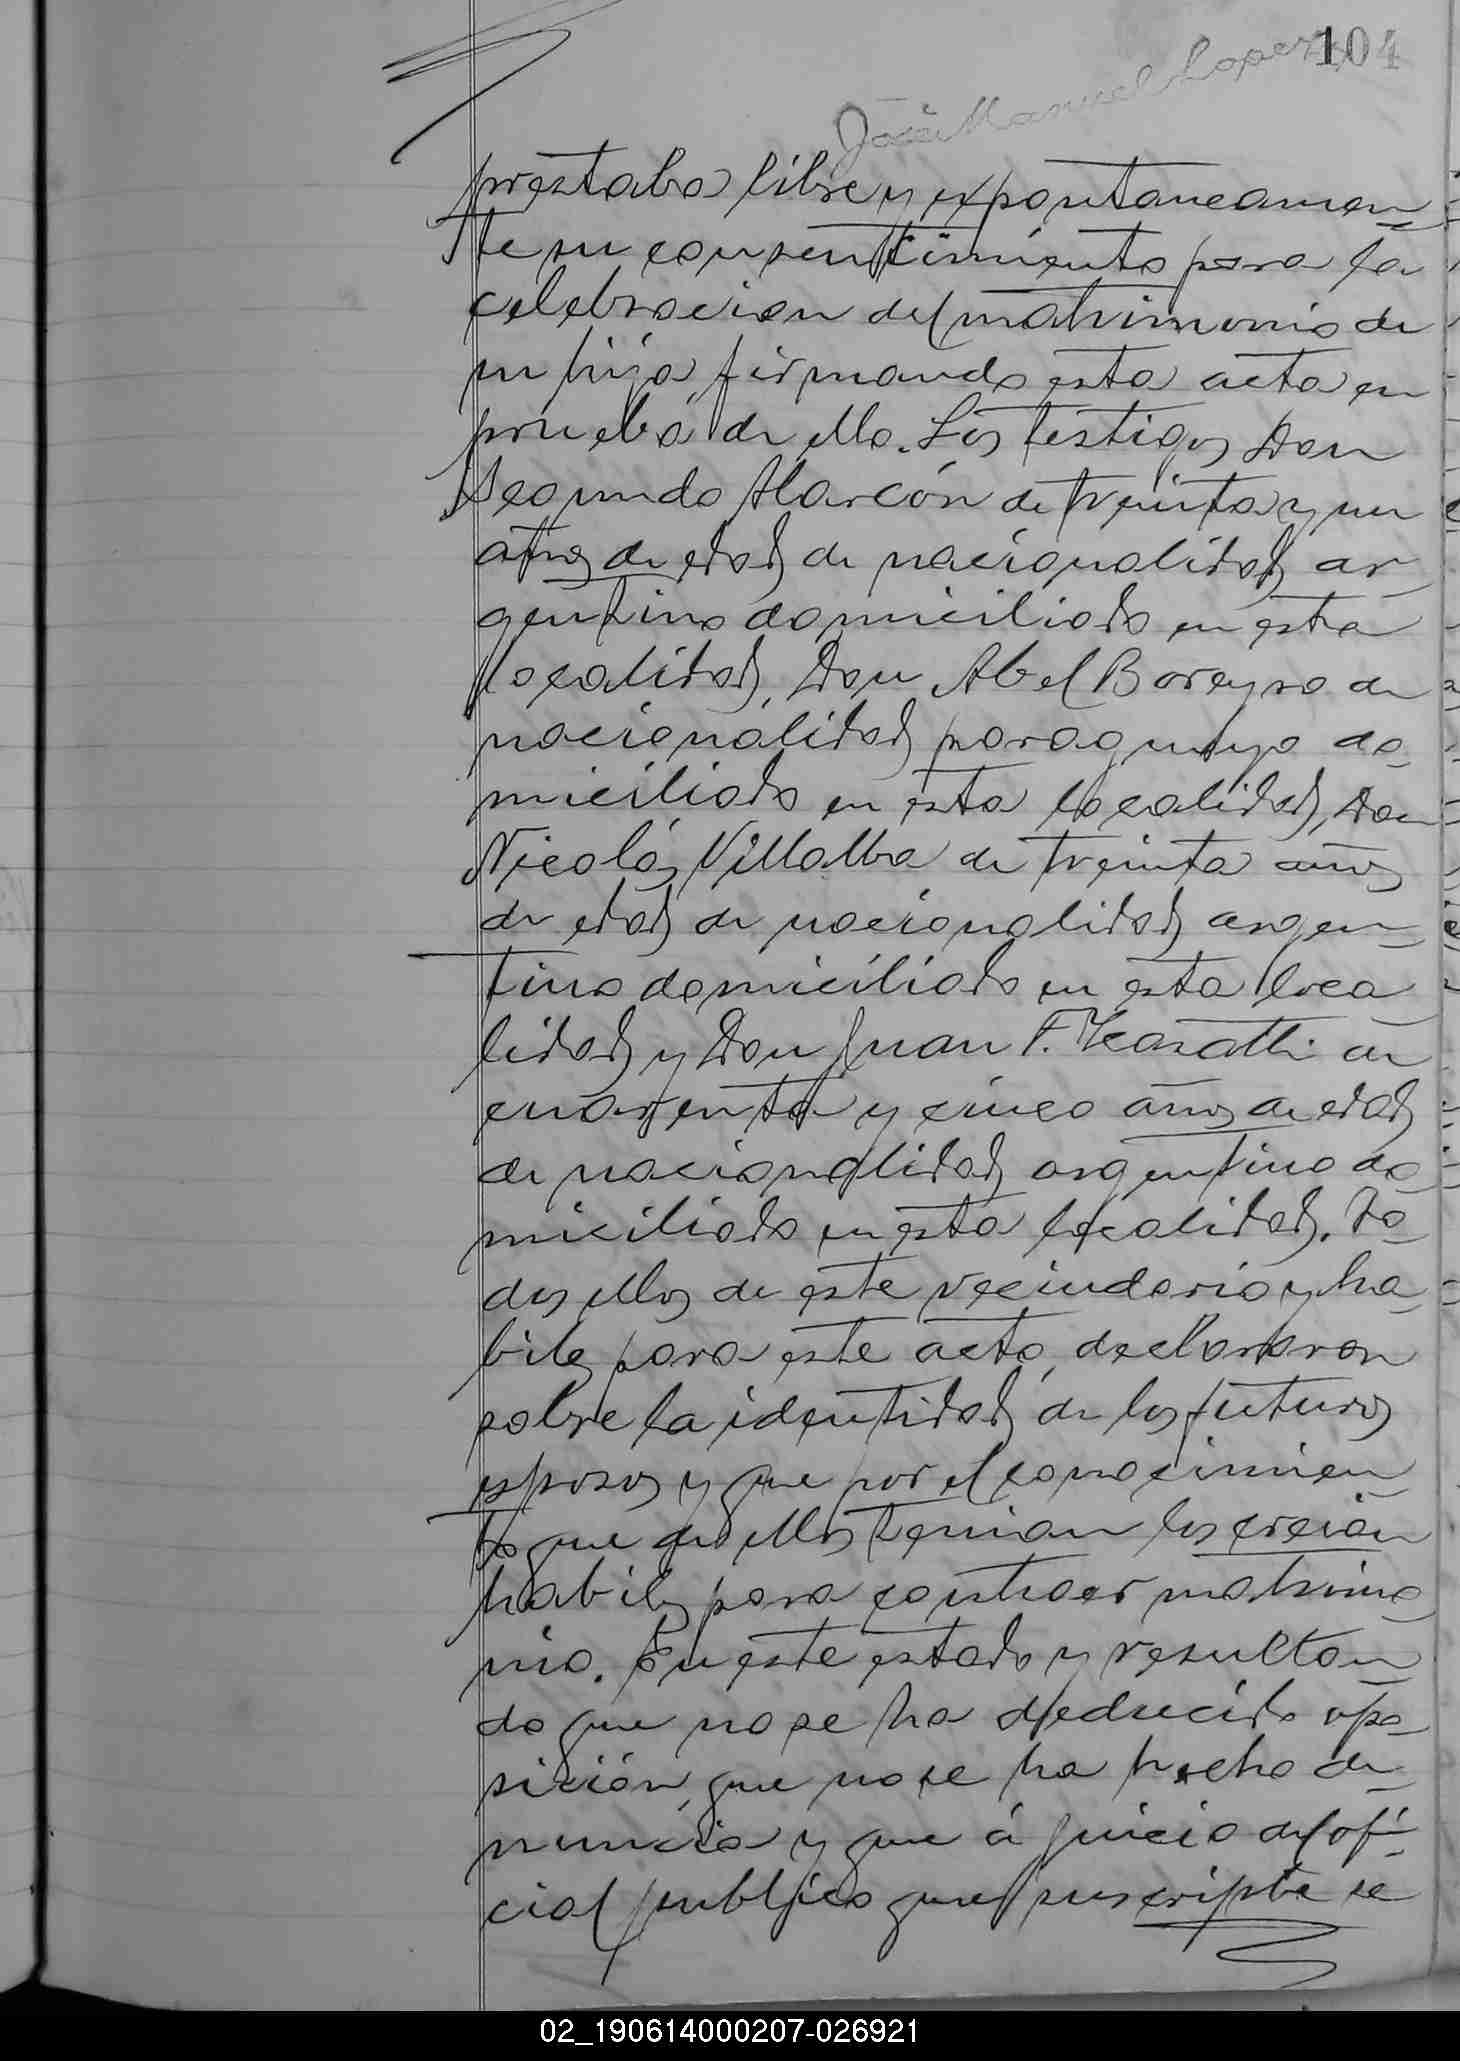 104
José Manuel Lopez
prestaba libre y expontaneamen-
te su consentimiento para la
celebracion del matrimonio de
su hija firmando esta acta en
prueba de ello. Los testigos Don
Segundo Alarcón de treinta y un
años de edad de nacionalidad ar-
gentino domiciliado en esta
localidad, Don Abel Boreyro de
nacionalidad paraguayo do-
miciliado en esta localidad, Don
Nicolás Villalba de treinta años
de edad de nacionalidad argen-
tino domiciliado en esta loca
lidad y Don Juan F. de
cuarenta y cinco años de edad
de nacionalidad argentino do
miciliado en esta localidad. To-
dos ellos de este vecindario y ha-
biles para este acto, declararon
sobre la identidad de los futuros
esposos y que por el conocimien-
to que de ellos tenian los creian
habiles para contraer matrimo-
nio. En este estado y resultan-
do que no se ha deducido opo-
sición, que no se ha hecho de-
nuncia y que á juicio del ofi-
cial publico que suscripbe se
02_190614000207-026921